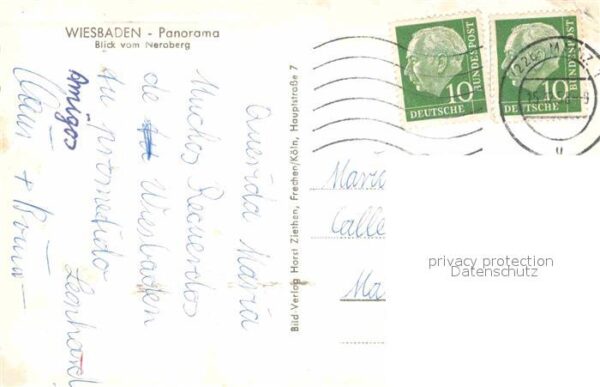 WIESBADEN - Panorama
Blick vom Neroberg
Querida Maria
Muchos Recuerdos
de Wiesbaden
tu prometido
Leonhard
Amigos
Claus + Bruni
Bild Verlag Horst Ziethen, Frechen/Köln, Hauptstraße 7
10
DEUTSCHE
BUNDESPOST
10
DEUTSCHE
BUNDESPOST
MAINZ
Mari
Calle
Ma
privacy protection
Datenschutz